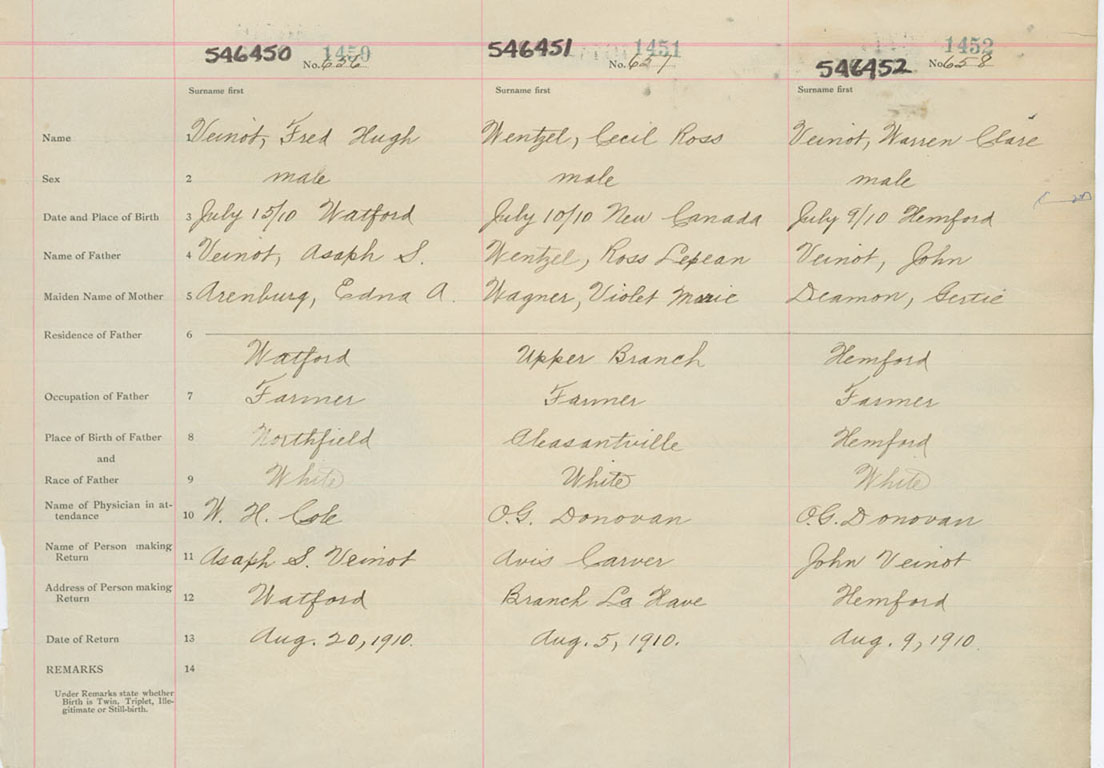 546450 1450 546451 1451 546452 1452
No. 656 No. 657 No. 658
Surname first Surname first Surname first
Name 1 Veinot, Fred Hugh Wentzel, Cecil Ross Veinot, Warren Clare
Sex 2 male male male
Date and Place of Birth 3 July 15/10 Watford July 10/10 New Canada July 9/10 Hemford
Name of Father 4 Veinot, Asaph S. Wentzel, Ross Veinot, John
Maiden Name of Mother 5 Arenburg, Edna A. Wagner, Violet Marie Deamon, Gertie
Residence of Father 6
Watford Upper Branch Hemford
Occupation of Father 7 Farmer Farmer Farmer
Place of Birth of Father 8 Northfield Pleasantville Hemford
and
Race of Father 9 White White White
Name of Physician in at-
tendance 10 W. H. Cole O.G. Donovan O.G. Donovan
Name of Person making
Return 11 Asaph S. Veinot Avis Carver John Veinot
Address of Person making
Return 12 Watford Branch La Have Hemford
Date of Return 13 Aug. 20, 1910. Aug. 5, 1910. Aug. 9, 1910.
REMARKS 14
Under Remarks state whether
Birth is Twin, Triplet, Ille-
gitimate or Still-birth.